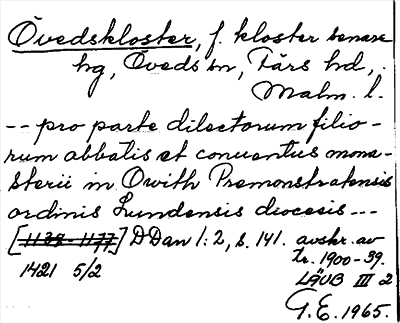 Övedskloster, f. kloster senare
hg, Öveds sn, Färs hd,
Malm. l.
-- pro parte dilectorum filio-
rum abbatis et conuentus mona-
sterii in Owith Premonstratensis
ordinis Lundensis diocesis ---
[1139-1177] DDan 1:2, s. 141. avskr. av
1421 5/2 tr. 1900-39.
LÄUB III 2
G.E. 1965.